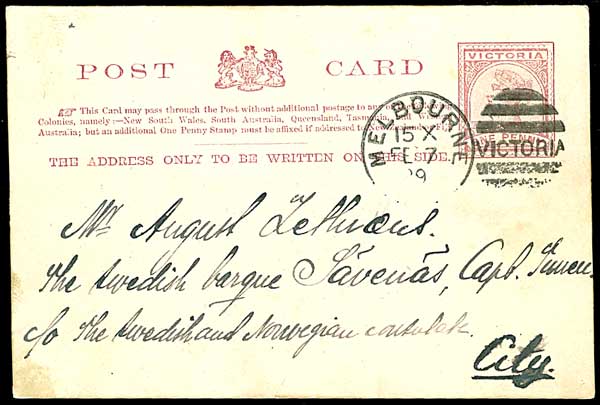 POST CARD
VICTORIA
ONE PENNY
This Card may pass through the Post without additional postage to any of the
Colonies, namely:—New South Wales, South Australia, Queensland, Tasmania, and
Australia; but an additional One Penny Stamp must be affixed if addressed to New
THE ADDRESS ONLY TO BE WRITTEN ON THIS SIDE.
MELBOURNE
15 X
FE 7
VICTORIA
Mr August
The Swedish barque Sävenäs, Capt.
c/o The Swedish and Norwegian consulate
City.